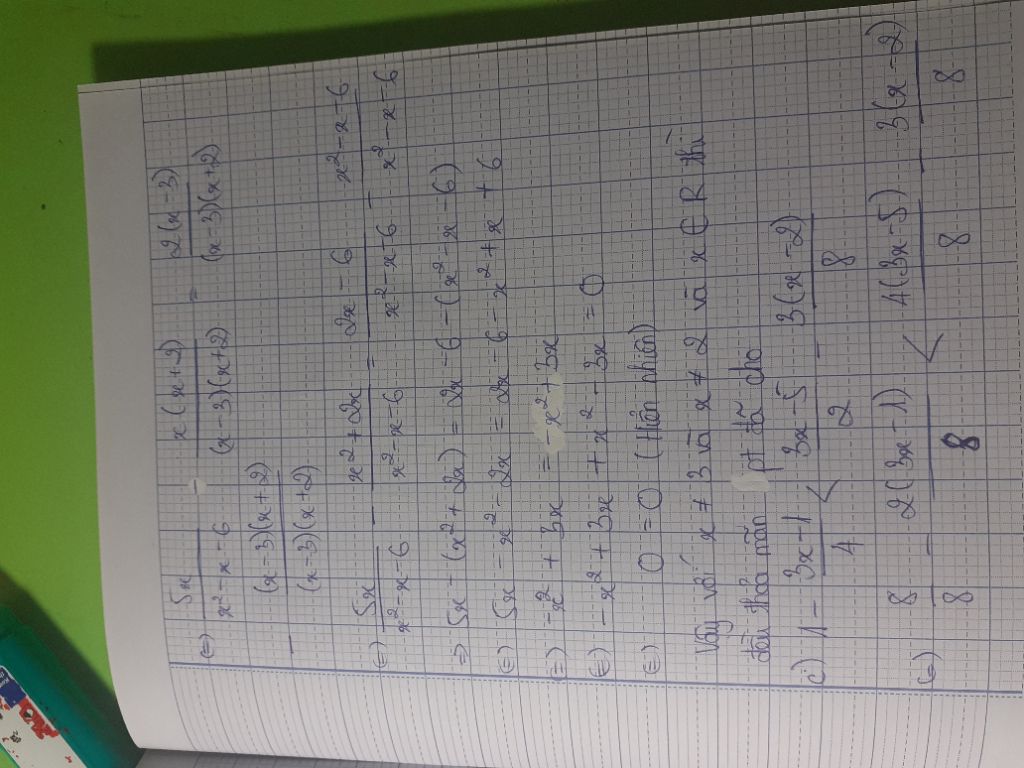 (=) 5x/(x² - x - 6) - x(x+2)/((x-3)(x+2)) = 2(x-3)/((x-3)(x+2))
- (x-3)(x+2)/((x-3)(x+2))
(=) 5x/(x² - x - 6) - (x² + 2x)/(x² - x - 6) = (2x - 6)/(x² - x - 6) - (x² - x - 6)/(x² - x - 6)
=) 5x - (x² + 2x) = 2x - 6 - (x² - x - 6)
(=) 5x - x² - 2x = 2x - 6 - x² + x + 6
(=) -x² + 3x = -x² + 3x
(=) -x² + 3x + x² - 3x = 0
(=) 0 = 0 (Hiển nhiên)
Vậy với x ≠ 3 và x ≠ 2 và x ∈ R thì
đều thỏa mãn pt đã cho
c) 1 - (3x-1)/4 < (3x-5)/2 - 3(x-2)/8
(=) 8/8 - 2(3x-1)/8 < 4(3x-5)/8 - 3(x-2)/8